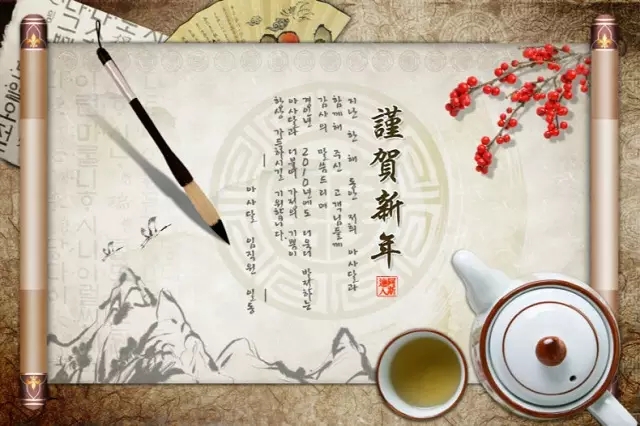 謹賀新年
지난 한 해 동안 저희 아사달과
함께해 주신 고객님들께
감사의 말씀드리며
경인년 2010년에도 더욱더 발전하는
아사달과 더불어 가정의 기쁨이
항상 가득하시길 기원합니다.
아사달 임직원 일동